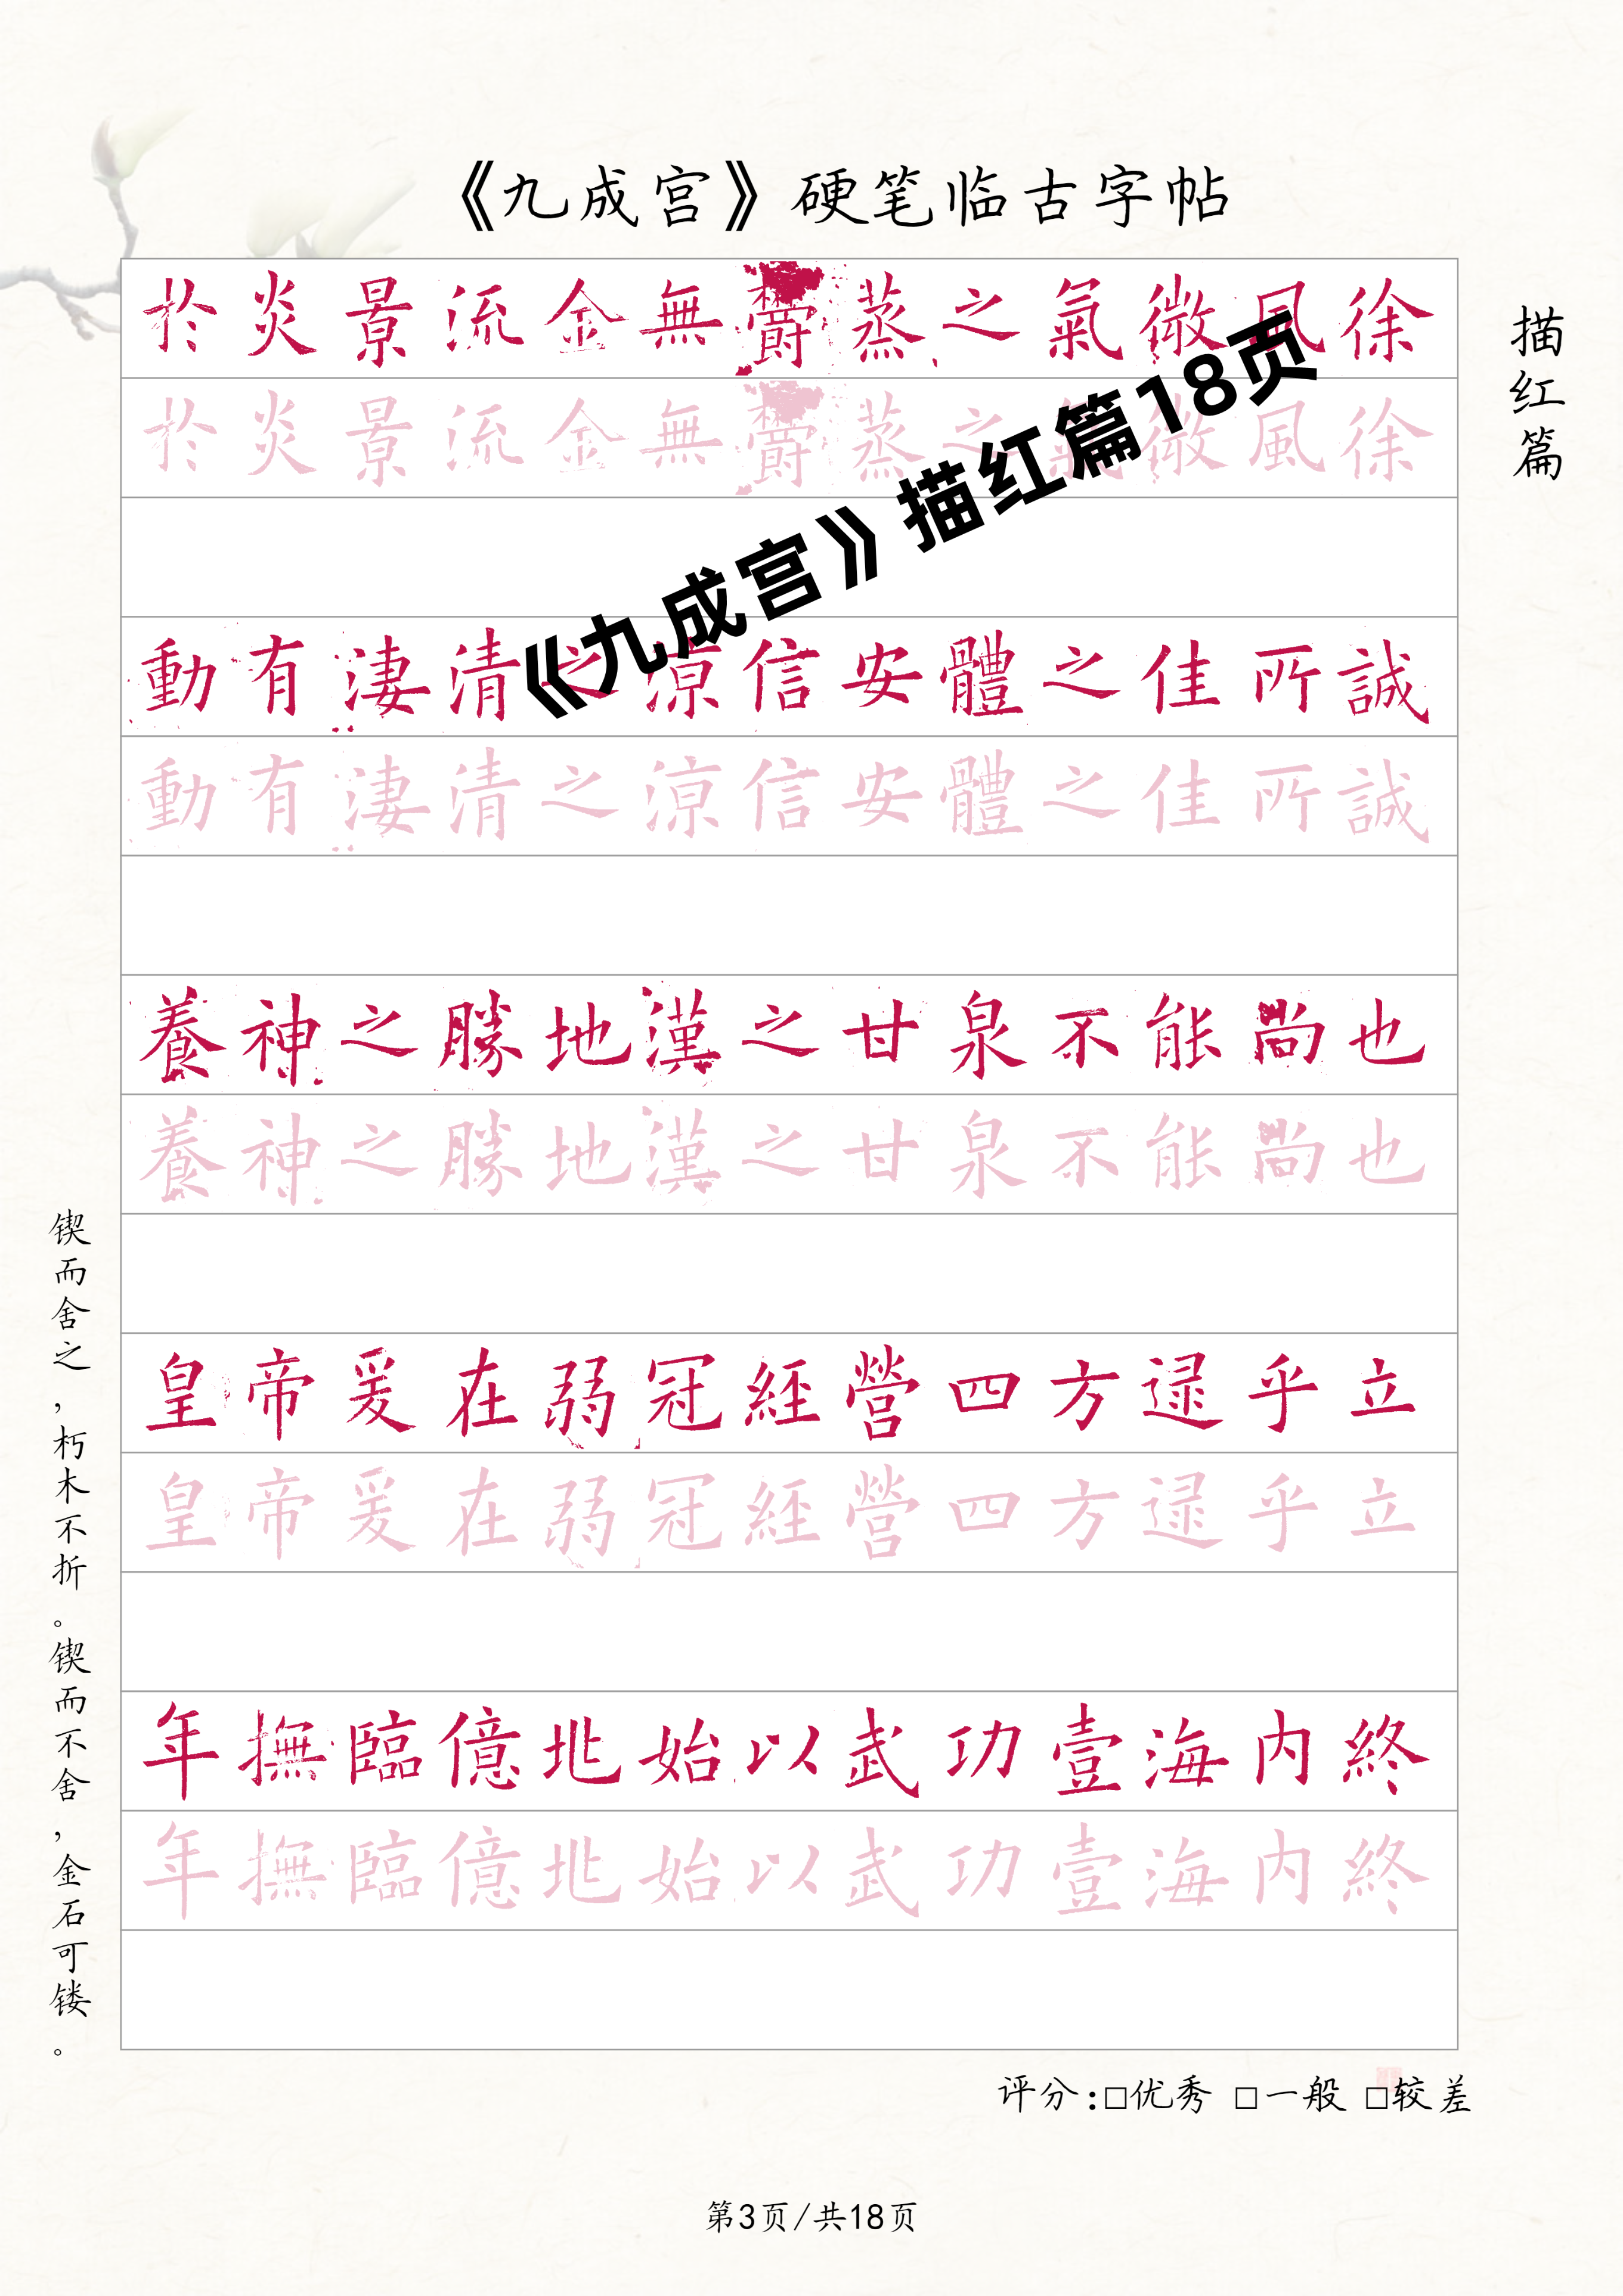 《九成宫》硬笔临古字帖
描红篇
於炎景流金無鬱蒸之氣微風徐
於炎景流金無鬱蒸之氣微風徐
《九成宫》描红篇18页
動有淒清之涼信安體之佳所誠
動有淒清之涼信安體之佳所誠
養神之勝地漢之甘泉不能尚也
養神之勝地漢之甘泉不能尚也
皇帝爰在弱冠經營四方逯乎立
皇帝爰在弱冠經營四方逯乎立
年撫臨億兆始以武功壹海内終
年撫臨億兆始以武功壹海内終
锲而舍之，朽木不折。锲而不舍，金石可镂。
评分:□优秀 □一般 □较差
第3页/共18页